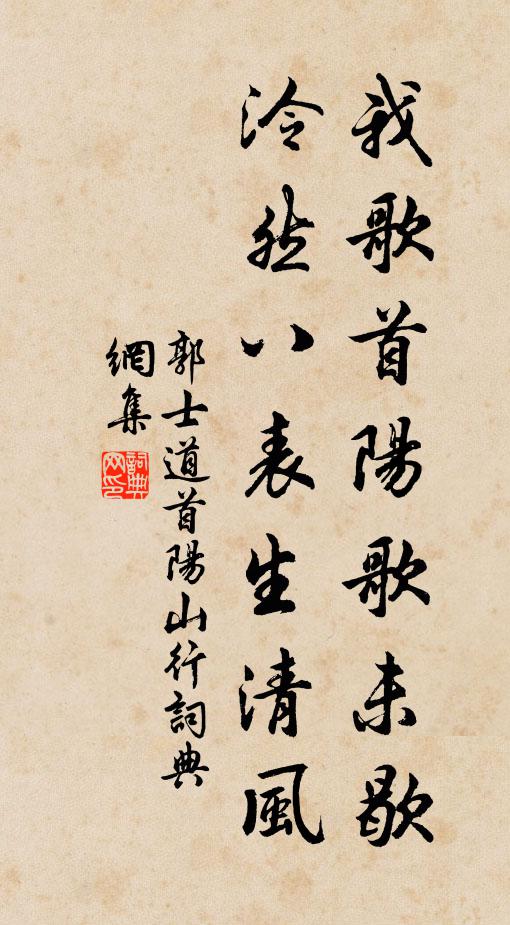 我歌首陽歌未歇
泠然八表生清風
郭士道首陽山行詞典
網集
詞典网印